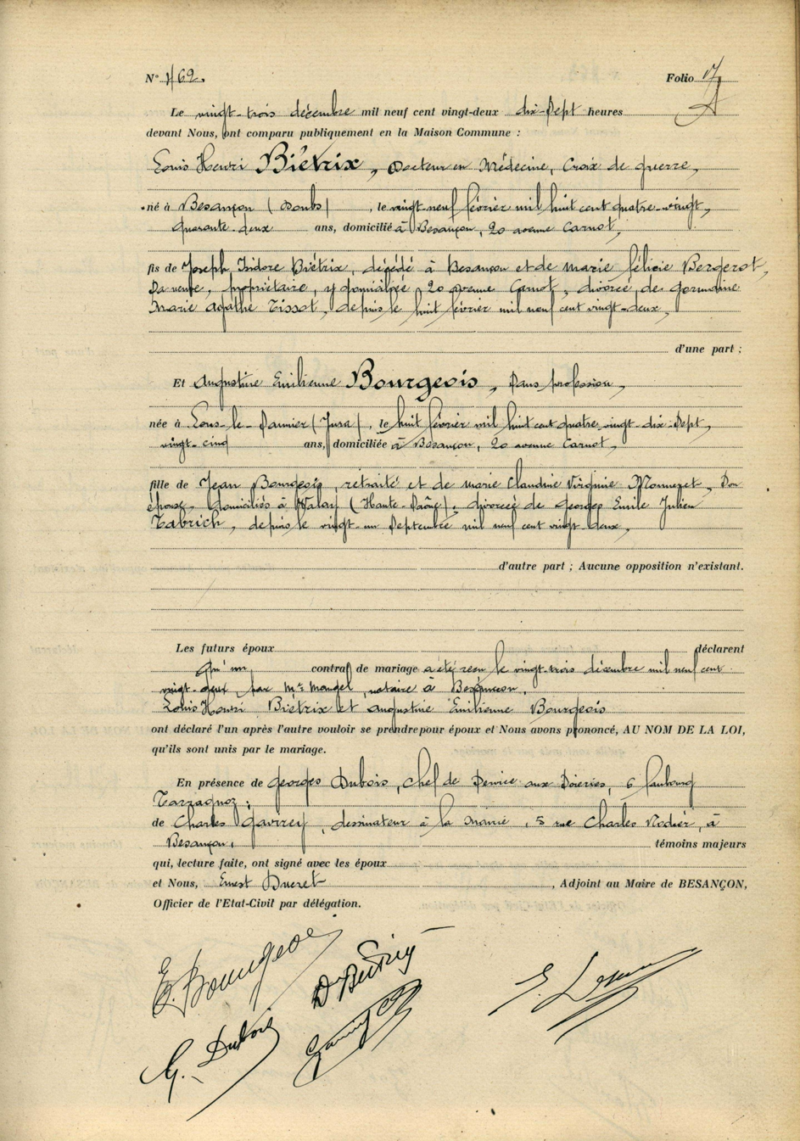 N° 462. Folio 17
Le vingt-trois décembre mil neuf cent vingt-deux dix-sept heures
devant Nous, ont comparu publiquement en la Maison Commune :
Louis Henri Biétrix, Docteur en Médecine, Croix de guerre,
né à Besançon (Doubs), le vingt-neuf février mil huit cent quatre-vingt,
quarante-deux ans, domicilié à Besançon, 20 avenue Carnot,
fils de Joseph Isidore Biétrix, décédé à Besançon et de Marie Félicie Bergerot,
sa veuve, propriétaire, y domiciliée, 20 avenue Carnot, divorcé de Germaine
Marie Agathe Tissot, depuis le huit février mil neuf cent vingt-deux,
d'une part ;
Et Augustine Emilienne Bourgeois, sans profession,
née à Lons-le-Saunier (Jura), le huit février mil huit cent quatre-vingt-dix-sept,
vingt-cinq ans, domiciliée à Besançon, 20 avenue Carnot,
fille de Jean Bourgeois, retraité et de Marie Claudine Virginie Monneret, son
épouse, domiciliés à Valay (Haute-Saône), divorcée de Georges Emile Julien
Tabrich, depuis le vingt-un septembre mil neuf cent vingt-deux,
d'autre part ; Aucune opposition n'existant.
Les futurs époux déclarent
qu'un contrat de mariage a été reçu le vingt-trois décembre mil neuf cent
vingt-deux par Me Mougel, notaire à Besançon.
Louis Henri Biétrix et Augustine Emilienne Bourgeois
ont déclaré l'un après l'autre vouloir se prendre pour époux et Nous avons prononcé, AU NOM DE LA LOI,
qu'ils sont unis par le mariage.
En présence de Georges Dubois, chef de service aux Soieries, 6 faubourg
Tarragnoz ;
de Charles Gavrrey, dessinateur à la Mairie, 5 rue Charles Nodier, à
Besançon, témoins majeurs
qui, lecture faite, ont signé avec les époux
et Nous, Ernest Ducret, Adjoint au Maire de BESANÇON,
Officier de l'Etat-Civil par délégation.
E. Bourgeois
D Biétrix
G. Dubois